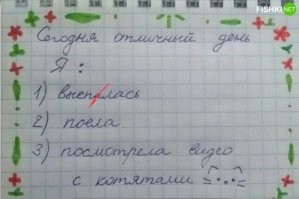 FISHKI.NET
Сегодня отличный день
Я :
1) выспалась
2) поела
3) посмотрела видео
с котятами